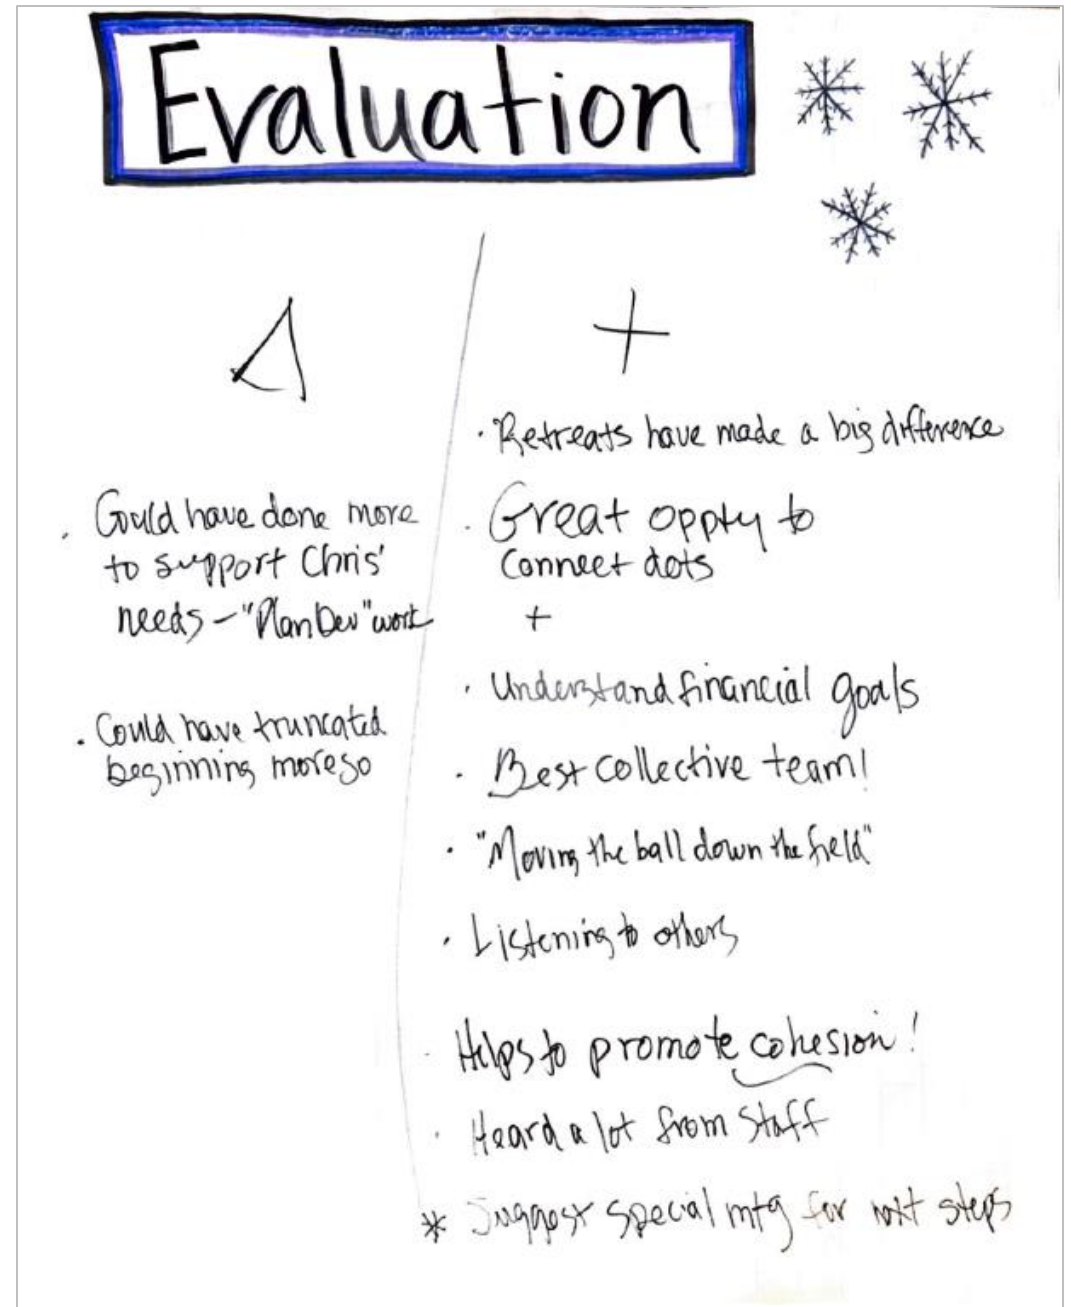 Evaluation
Δ
· Could have done more
to support Chris'
needs – "Plan Dev" work
· Could have truncated
beginning moreso
+
· Retreats have made a big difference
· Great oppty to
connect dots
+
· Understand financial goals
· Best collective team!
· "Moving the ball down the field"
· Listening to others
· Helps to promote cohesion!
· Heard a lot from staff
* Suggest special mtg for next steps